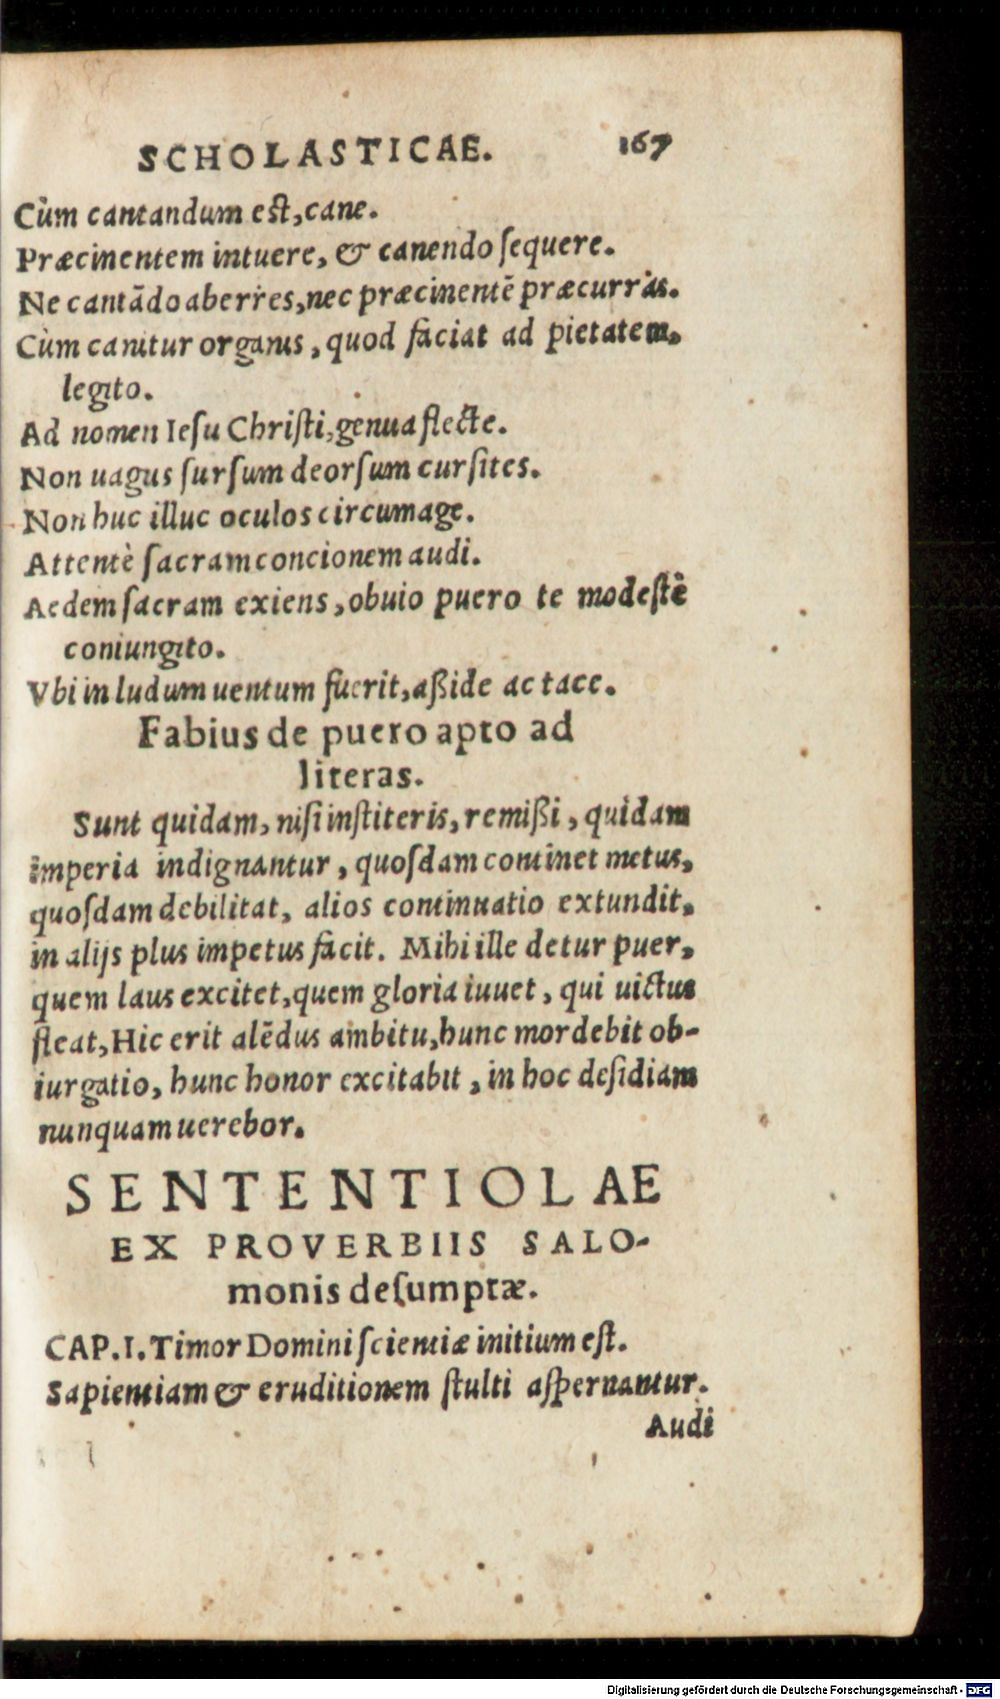 SCHOLASTICAE. 167
Cùm cantandum est, cane.
Præcinentem intuere, & canendo ſequere.
Ne cantãdo aberres, nec præcinentẽ præcurràs.
Cùm canitur organis, quod faciat ad pietatem,
legito.
Ad nomen Ieſu Chriſti, genua flecte.
Non uagus ſurſum deorſum curſites.
Non huc illuc oculos circumage.
Attentè ſacram concionem audi.
Aedem ſacram exiens, obuio puero te modeſtè
coniungito.
Vbi in ludum uentum fuerit, aßide ac tace.
Fabius de puero apto ad
literas.
Sunt quidam, niſi inſtiteris, remißi, quidam
imperia indignantur, quoſdam continet metus,
quoſdam debilitat, alios continuatio extundit,
in alijs plus impetus facit. Mihi ille detur puer,
quem laus excitet, quem gloria iuuet, qui uictus
fleat, Hic erit alẽdus ambitu, hunc mordebit ob-
iurgatio, hunc honor excitabit, in hoc deſidiam
nunquam uerebor.
SENTENTIOLAE
EX PROVERBIIS SALO-
monis deſumptæ.
CAP. I. Timor Domini ſcientiæ initium eſt.
Sapientiam & eruditionem ſtulti aſpernantur.
Audi
Digitalisierung gefördert durch die Deutsche Forschungsgemeinschaft - DFG